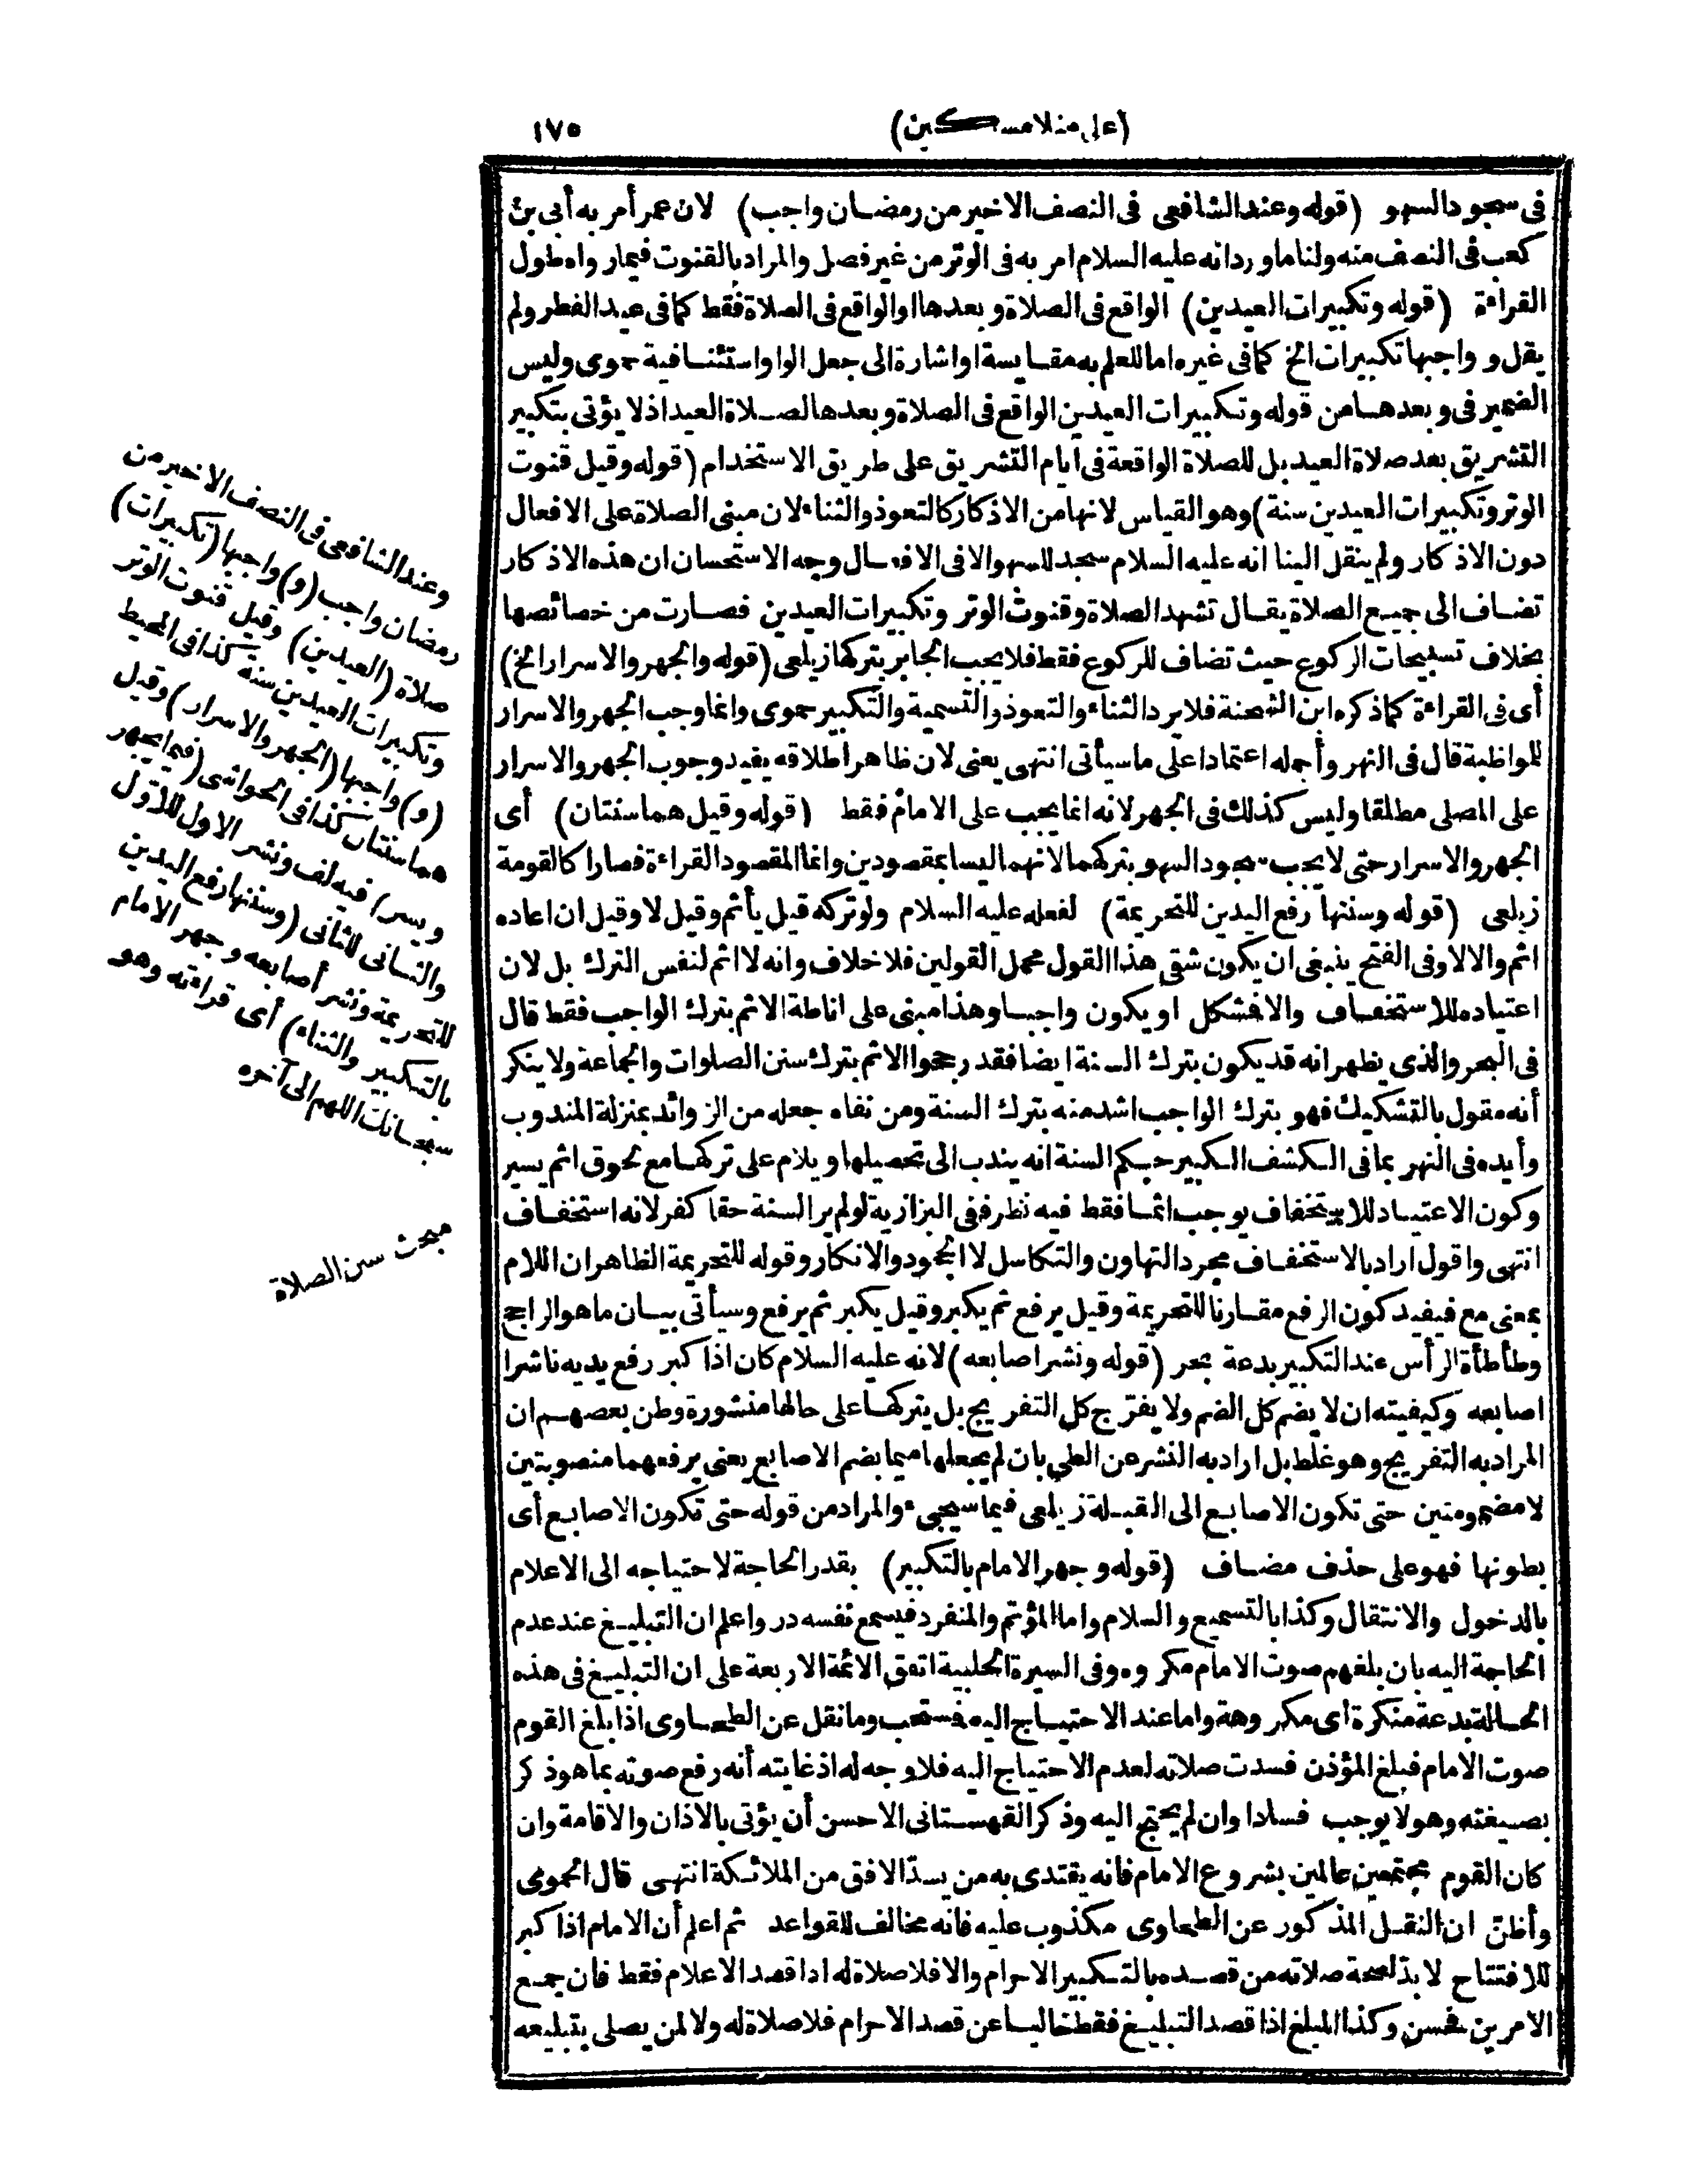 (على منلا مسكين)
١٧٥
فى سجود السهو (قوله وعند الشافعى فى النصف الاخير من رمضان واجب) لان عمر أمر به أبى بن
كعب فى النصف منه ولنا ما ورد انه عليه السلام امر به فى الوتر من غير فصل والمراد بالقنوت فيما رواه طول
القراءة (قوله وتكبيرات العيدين) الواقع فى الصلاة وبعدها او الواقع فى الصلاة فقط كما فى عيد الفطر ولم
يقل وواجبها تكبيرات الخ كما فى غيره اما للعلم به مقايسة او اشارة الى جعل الواو استئنافية حموى وليس
الضمير فى وبعدها من قوله وتكبيرات العيدين الواقع فى الصلاة وبعدها لصلاة العيد اذ لا يؤتى بتكبير
التشريق بعد صلاة العيد بل للصلاة الواقعة فى ايام التشريق على طريق الاستخدام (قوله وقيل قنوت
الوتر وتكبيرات العيدين سنة) وهو القياس لانها من الاذكار كالتعوذ والثناء لان مبنى الصلاة على الافعال
دون الاذكار ولم ينقل الينا انه عليه السلام سجد للسهو الا فى الافعال وجه الاستحسان ان هذه الاذكار
تضاف الى جميع الصلاة يقال تشهد الصلاة وقنوت الوتر وتكبيرات العيدين فصارت من خصائصها
بخلاف تسبيحات الركوع حيث تضاف للركوع فقط فلا يجب الجابر بتركها زيلعى (قوله والجهر والاسرار الخ)
أى فى القراءة كما ذكره ابن الشحنة فلا يرد الثناء والتعوذ والتسمية والتكبير حموى وانما وجب الجهر والاسرار
للمواظبة قال فى النهر وأجمله اعتمادا على ما سيأتى انتهى يعنى لان ظاهر اطلاقه يفيد وجوب الجهر والاسرار
على المصلى مطلقا وليس كذلك فى الجهر لانه انما يجب على الامام فقط (قوله وقيل هما سنتان) أى
الجهر والاسرار حتى لا يجب سجود السهو بتركهما لانهما ليسا بمقصودين وانما المقصود القراءة فصارا كالقومة
زيلعى (قوله وسننها رفع اليدين للتحريمة) لفعله عليه السلام ولو تركه قيل يأثم وقيل لا وقيل ان اعاده
اثم والا لا وفى الفتح ينبغى ان يكون شقى هذا القول محمل القولين فلا خلاف وانه لا اثم لنفس الترك بل لان
اعتياده للاستخفاف والا فشكل او يكون واجبا وهذا مبنى على اناطة الاثم بترك الواجب فقط قال
فى البحر والذى يظهر انه قد يكون بترك السنة ايضا فقد رجحوا الاثم بترك سنن الصلوات والجماعة ولا ينكر
أنه مقول بالتشكيك فهو بترك الواجب اشد منه بترك السنة ومن نفاه جعله من الزوائد بمنزلة المندوب
وأيده فى النهر بما فى الكشف الكبير حكم السنة انه يندب الى تحصيلها ويلام على تركها مع لحوق اثم يسير
وكون الاعتياد للاستخفاف يوجب اثما فقط فيه نظر ففى البزازية لو لم ير السنة حقا كفر لانه استخفاف
انتهى واقول اراد بالاستخفاف مجرد التهاون والتكاسل لا الجحود والانكار وقوله للتحريمة الظاهر ان اللام
بمعنى مع فيفيد كون الرفع مقارنا للتحريمة وقيل يرفع ثم يكبر وقيل يكبر ثم يرفع وسيأتى بيان ما هو الراجح
وطأطأة الرأس عند التكبير بدعة بحر (قوله ونشر اصابعه) لانه عليه السلام كان اذا كبر رفع يديه ناشرا
اصابعه وكيفيته ان لا يضم كل الضم ولا يفرّج كل التفريج بل يتركها على حالها منشورة وظن بعضهم ان
المراد به التفريج وهو غلط بل اراد به النشر عن الطى بان لم يجعلها ميما بضم الاصابع يعنى يرفعهما منصوبتين
لا مضمومتين حتى تكون الاصابع الى القبلة زيلعى فيما سيجىء والمراد من قوله حتى تكون الاصابع أى
بطونها فهو على حذف مضاف (قوله وجهر الامام بالتكبير) بقدر الحاجة لاحتياجه الى الاعلام
بالدخول والانتقال وكذا بالتسميع والسلام واما المؤتم والمنفرد فيسمع نفسه در واعلم ان التبليغ عند عدم
الحاجة اليه بان بلغهم صوت الامام مكروه وفى السيرة الحلبية اتفق الائمة الاربعة على ان التبليغ فى هذه
الحالة بدعة منكرة أى مكروهة واما عند الاحتياج اليه فستحب وما نقل عن الطحاوى اذا بلغ القوم
صوت الامام فبلغ المؤذن فسدت صلاته لعدم الاحتياج اليه فلا وجه له اذ غايته أنه رفع صوته بما هو ذكر
بصيغته وهو لا يوجب فسادا وان لم يحتج اليه وذكر القهستانى الاحسن أن يؤتى بالاذان والاقامة وان
كان القوم مجتمعين عالمين بشروع الامام فانه يقتدى به من يسدّ الافق من الملائكة انتهى قال الحموى
وأظنّ ان النقل المذكور عن الطحاوى مكذوب عليه فانه مخالف للقواعد ثم اعلم أن الامام اذا كبر
للافتتاح لا بدّ لصحة صلاته من قصده بالتكبير الاحرام والا فلا صلاة له اذا قصد الاعلام فقط فان جمع
الامرين فحسن وكذا المبلغ اذا قصد التبليغ فقط خاليا عن قصد الاحرام فلا صلاة له ولا لمن يصلى بتبليغه
وعند الشافعى فى النصف الاخير من
رمضان واجب (و) واجبها (تكبيرات)
صلاة (العيدين) وقيل قنوت الوتر
وتكبيرات العيدين سنة كذا فى المحيط
(و) واجبها (الجهر والاسرار) وقيل
هما سنتان كذا فى الحواشى (فيما يجهر
ويسر) فيه لف ونشر الاول للاول
والثانى للثانى (وسننها رفع اليدين
للتحريمة ونشر أصابعه وجهر الامام
بالتكبير والثناء) أى قراءته وهو
سبحانك اللهم الى آخره
مبحث سنن الصلاة